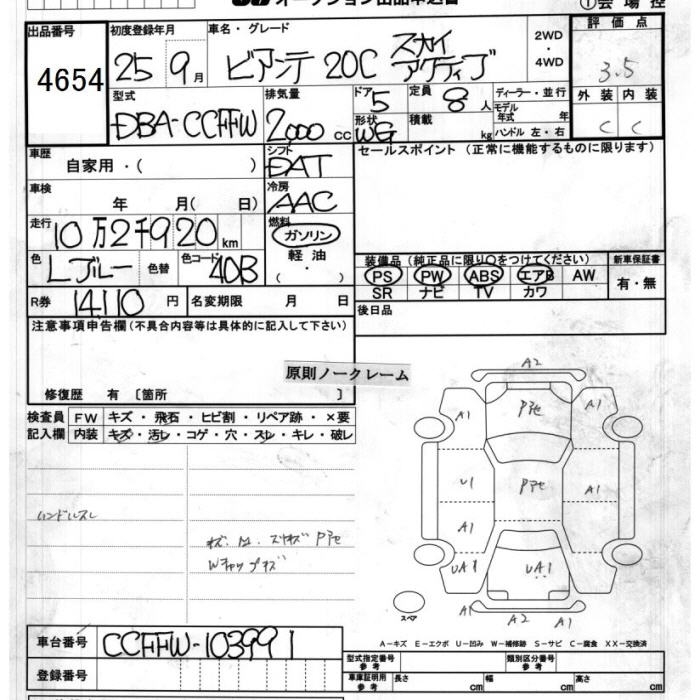 オークション出品申込書
①会場控
出品番号
4654
初度登録年月
25 9月
車名・グレード
ビアンテ 20C スカイ アクティブ
2WD
・
4WD
評価点
3.5
外装 内装
C C
型式
DBA-CCFFW
排気量
2,000 cc
ドア
5
形状
WG
定員
8人
積載
kg
ディーラー・並行
モデル年式 年
ハンドル 左・右
車歴
自家用・( )
シフト
DAT
セールスポイント (正常に機能するものに限ります)
車検
年 月( 日)
冷房
AAC
走行
10万2千920km
燃料
ガソリン
軽油
( ・ )
色
Lブルー
色替
色コード
40B
装備品 (純正品に限り○をつけてください)
PS PW ABS エアB AW
SR ナビ TV カワ
新車保証書
有・無
R券
14,110円
名変期限 月 日
後日品
注意事項申告欄(不具合内容等は具体的に記入して下さい)
原則ノークレーム
修復歴 有 〔箇所 〕
検査員 FW キズ・飛石・ヒビ割・リペア跡・×要
記入欄 内装 キズ・汚レ・コゲ・穴・スレ・キレ・破レ
ハンドルスレ
Wキャップキズ
A2
A1 Pアセ A1
U1 Pアセ A1
A1
UA1 UA1 A1
スペア
A1 A2 A1
A-キズ E-エクボ U-凹み W-補修跡 S-サビ C-腐食 XX-交換済
車台番号
CCFFW-103991
登録番号
型式指定番号
参考
類別区分番号
参考
車庫証明用
参考
長さ cm 幅 cm 高さ cm